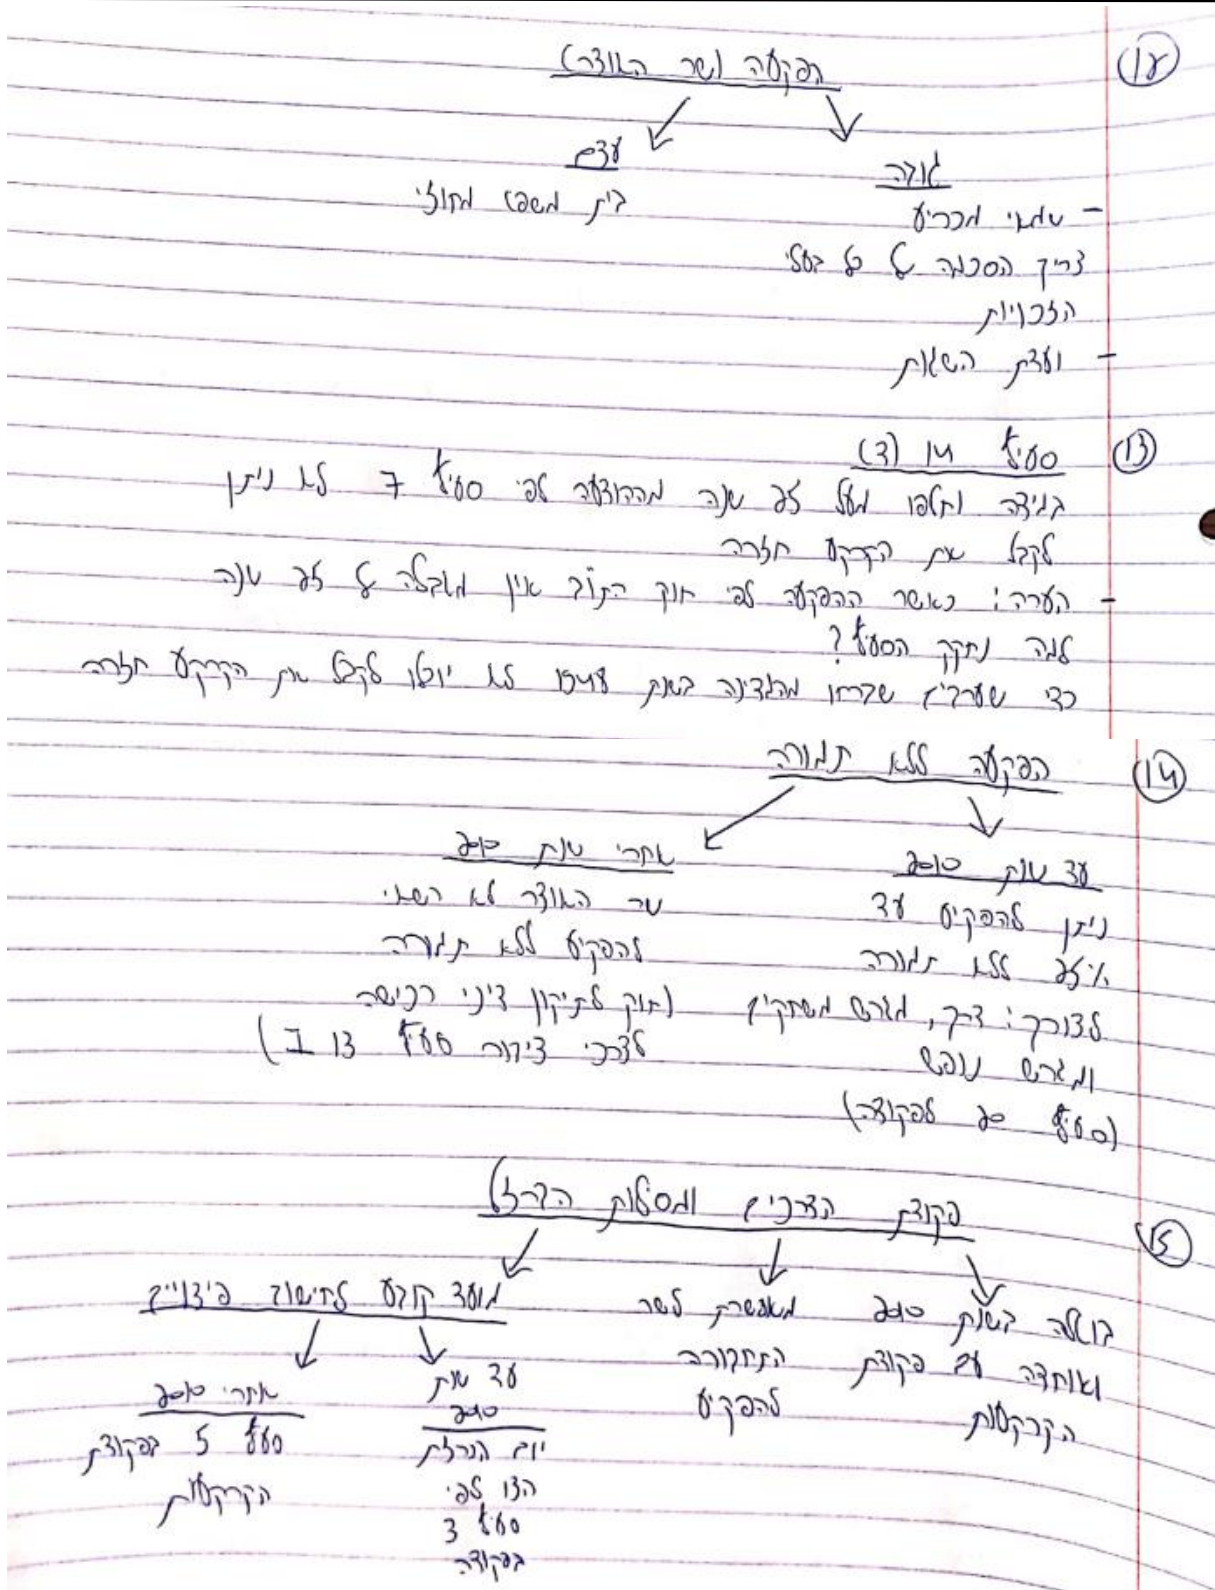 (12)
הפקעה (שר האוצר)
גובה
- שמאי מכריע
צריך הסכמה של כל בעלי
הזכויות
- ועדת השגות
עצם
בית משפט מחוזי
(13)
סעיף 14 (ד)
במידה וחלפו מעל 25 שנה מההודעה לפי סעיף 7 לא ניתן
לקבל את הקרקע חזרה
- הערה: כאשר ההפקעה לפי חוק התו"ב אין מגבלה של 25 שנה
למה נחקק הסעיף?
כדי שערבים שברחו מהמדינה בשנת 1948 לא יוכלו לקבל את הקרקע חזרה
(14)
הפקעה ללא תמורה
עד שנת 2010
ניתן להפקיע עד
25% ללא תמורה
לצורך: דרך, מגרש משחקים
ומגרש נופש
(סעיף 20 לפקודה)
אחרי שנת 2010
שר האוצר לא רשאי
להפקיע ללא תמורה
(חוק לתיקון דיני רכישה
לצרכי ציבור סעיף 13 ב)
(15)
פקודת הדרכים ומסילות הברזל
בוטלה בשנת 2010
ואוחדה עם פקודת
הקרקעות
מאפשרת לשר
התחבורה
להפקיע
מועד קובע לחישוב פיצויים
עד שנת
2010
יום הכרזת
הצו לפי
סעיף 3
בפקודה
אחרי 2010
סעיף 5 בפקודת
הקרקעות